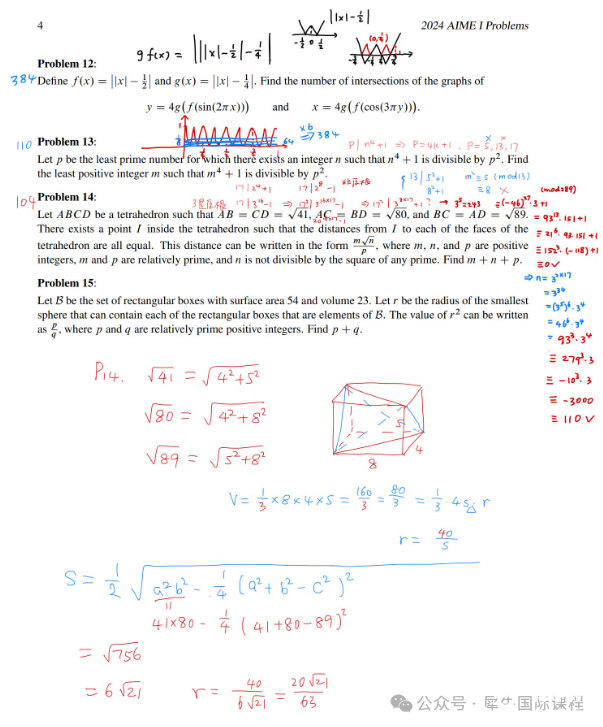 4
2024 AIME I Problems
g f(x) = ||||x|-1/2|-1/4|
||x|-1/2|
-1/2 0 1/2
Problem 12:
384
Define f(x) = ||x| − 1/2| and g(x) = ||x| − 1/4|. Find the number of intersections of the graphs of
y = 4g(f(sin(2πx))) and x = 4g(f(cos(3πy))).
⇒ 384
110
Problem 13:
p | n⁴+1 ⇒ p=4k+1, p=5,13,17
Let p be the least prime number for which there exists an integer n such that n⁴ + 1 is divisible by p². Find
the least positive integer m such that m⁴ + 1 is divisible by p².
104
Problem 14:
(mod 289)
Let ABCD be a tetrahedron such that AB = CD = √41, AC = BD = √80, and BC = AD = √89.
There exists a point I inside the tetrahedron such that the distances from I to each of the faces of the
tetrahedron are all equal. This distance can be written in the form m√n/p, where m, n, and p are positive
integers, m and p are relatively prime, and n is not divisible by the square of any prime. Find m + n + p.
≡ 0 √
Problem 15:
Let B be the set of rectangular boxes with surface area 54 and volume 23. Let r be the radius of the smallest
sphere that can contain each of the rectangular boxes that are elements of B. The value of r² can be written
as p/q, where p and q are relatively prime positive integers. Find p + q.
= 3³⁴
= 46⁶·3⁴
= 93³·3⁴
≡ 279³·3
≡ -10³·3
≡ -3000
≡ 110 √
P14. √41 = √4²+5²
√80 = √4²+8²
√89 = √5²+8²
5
4
8
V = 1/3 × 8 × 4 × 5 = 160/3 = 80/3 = 1/3 · 4S△ r
r = 40/S
S = 1/2 √a²b² - 1/4 (a²+b²-c²)²
41×80 - 1/4 (41+80-89)²
= √756
= 6√21
r = 40/6√21 = 20√21/63
公众号 · 犀牛国际课程